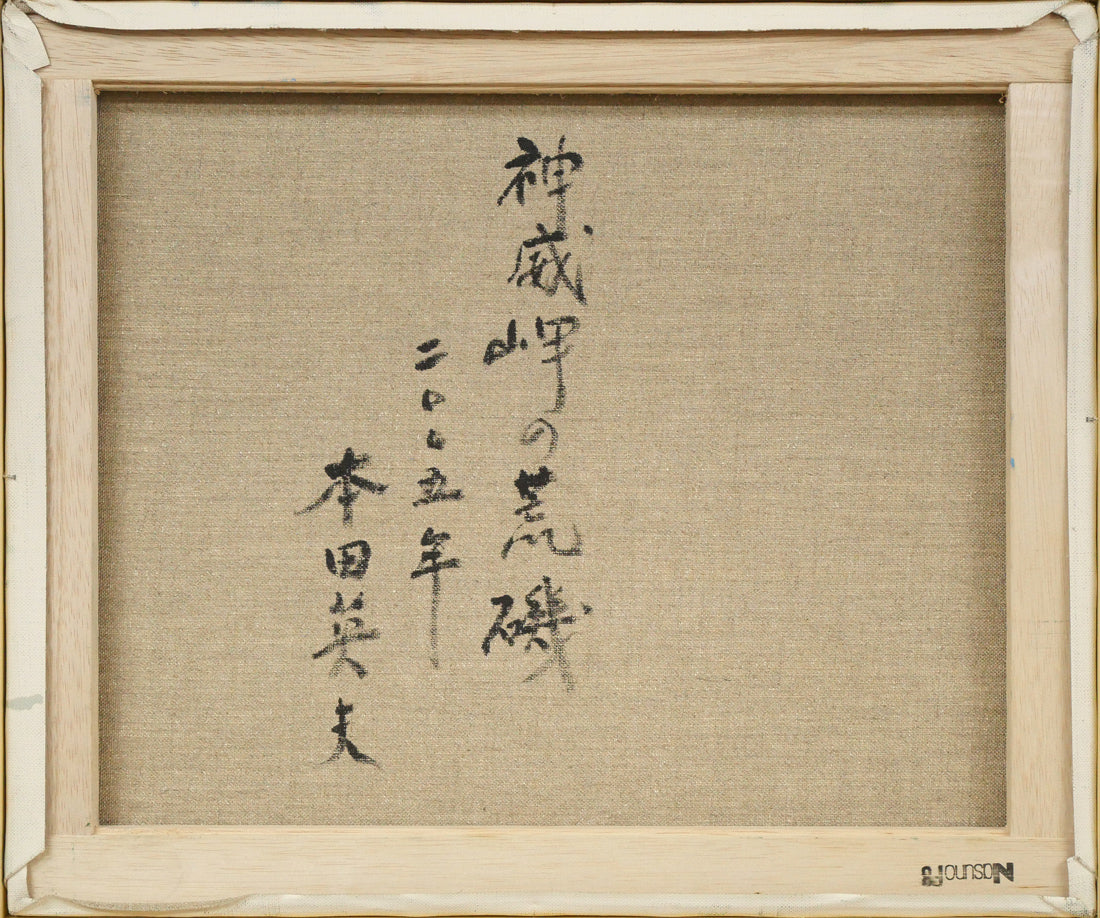 神威岬の荒磯
二〇〇五年
本田英夫
F8